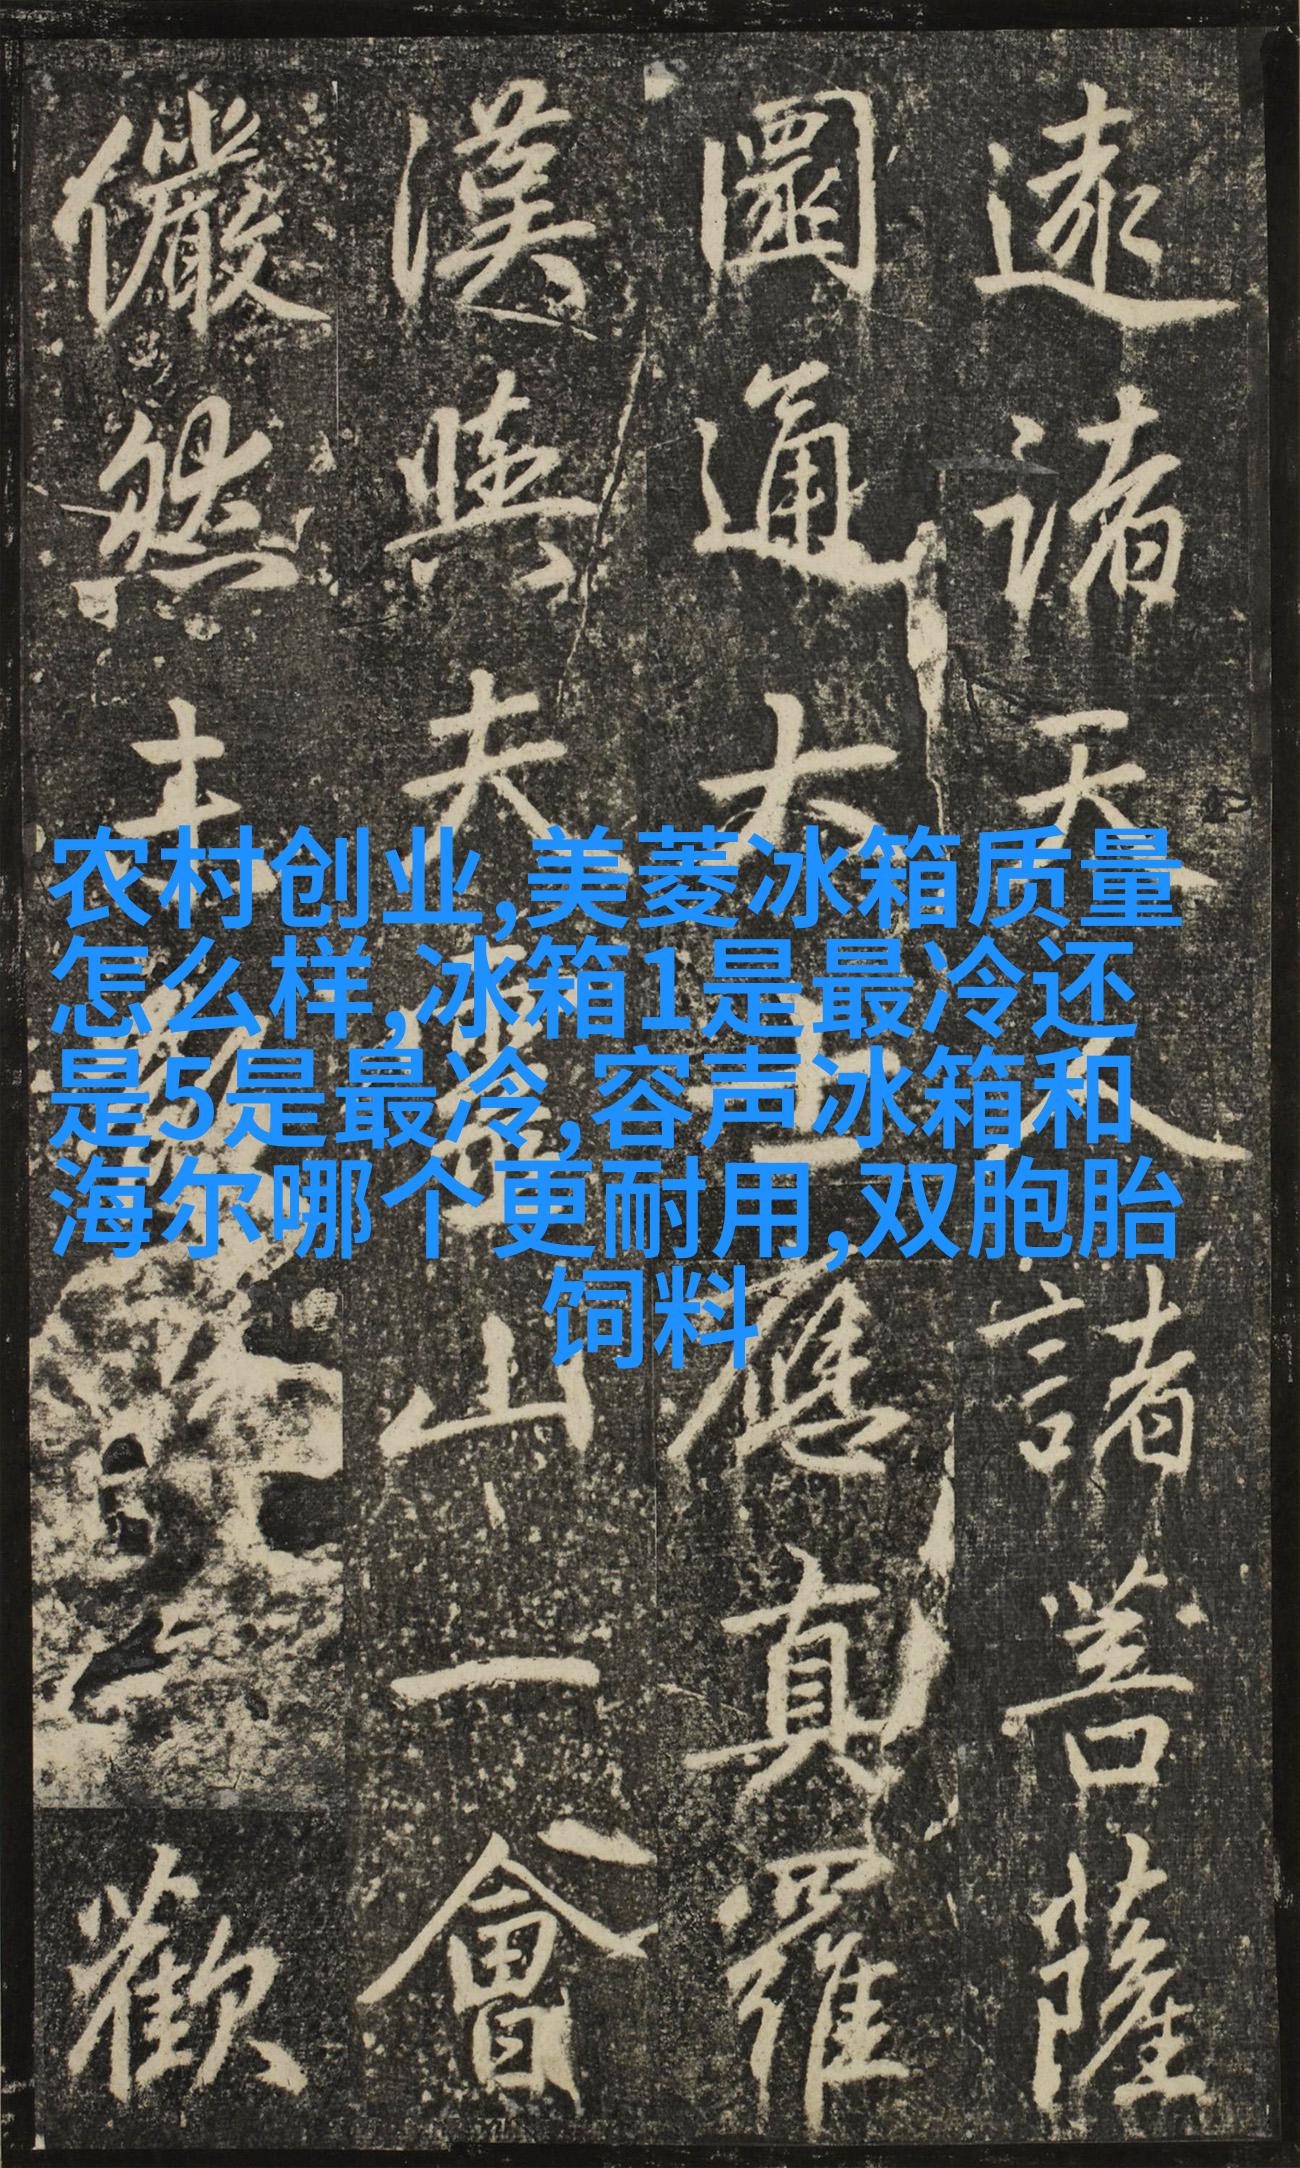 逮諸天人諸菩薩
圜通大士應真羅
漢與夫靈山一會
儼然歡
农村创业,美菱冰箱质量
怎么样,冰箱1是最冷还
是5是最冷,容声冰箱和
海尔哪个更耐用,双胞胎
饲料